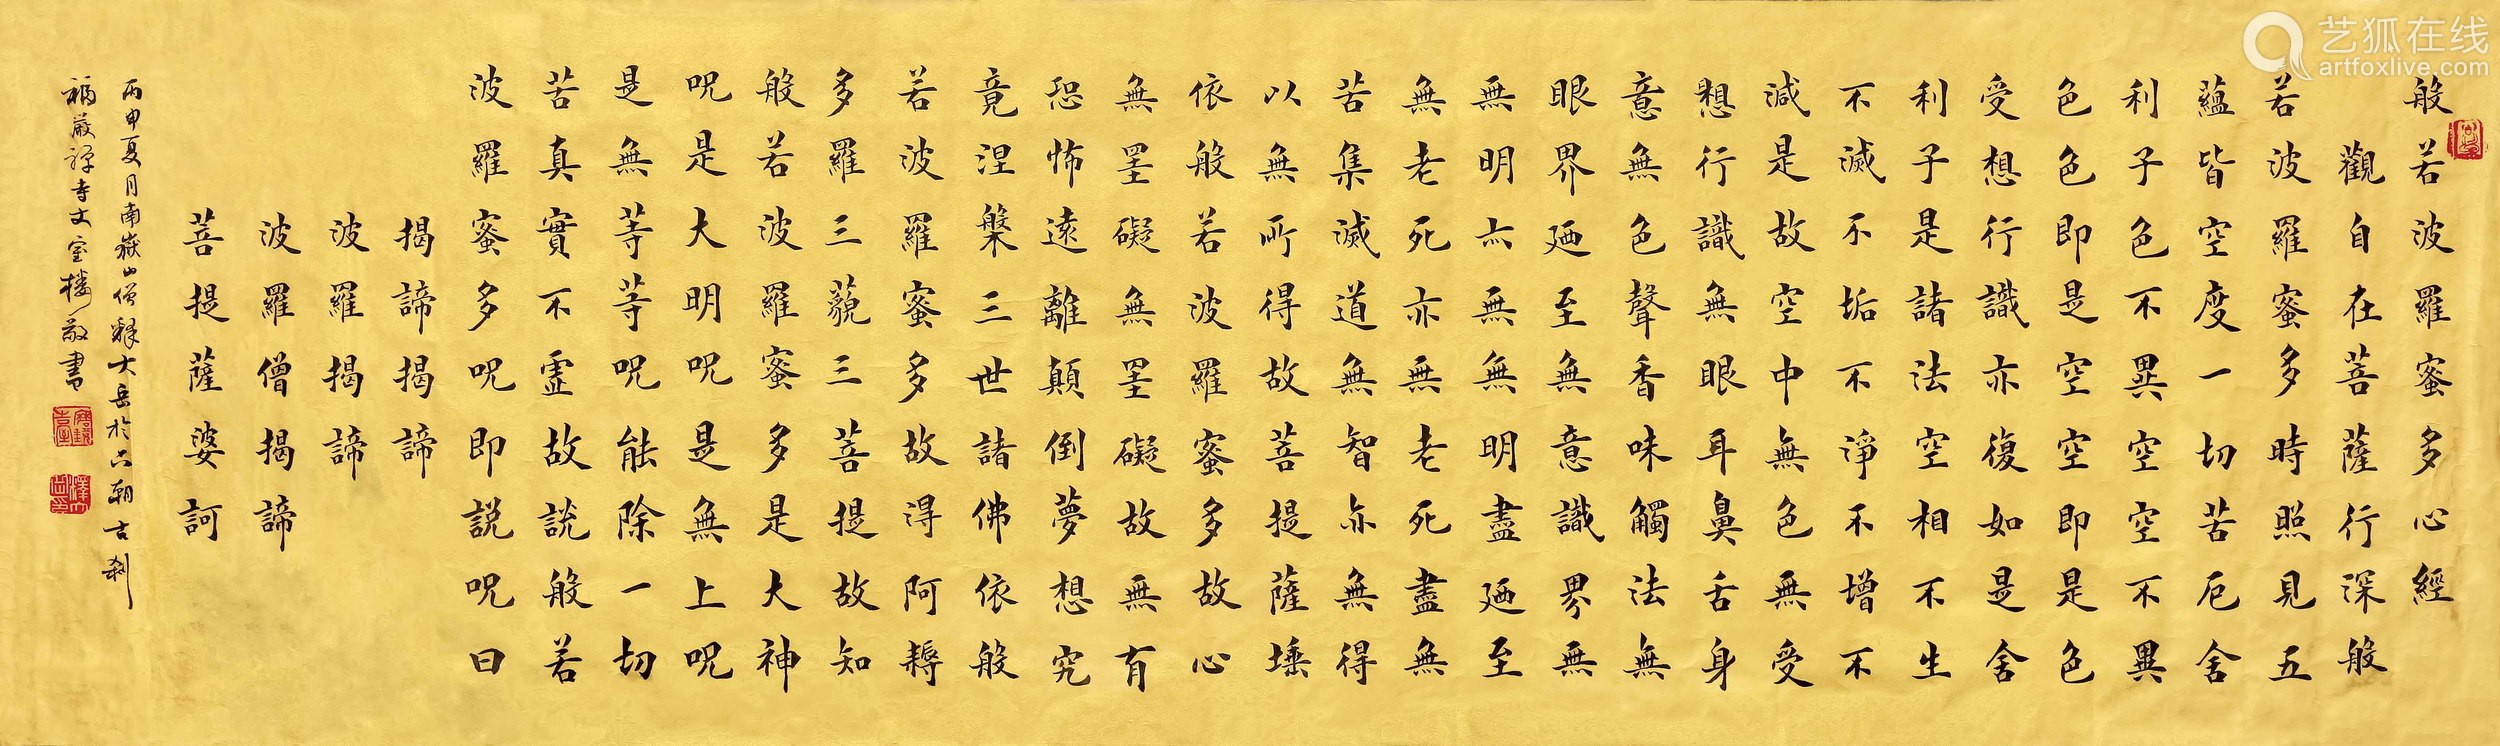 般若波羅蜜多心經
觀自在菩薩行深般
若波羅蜜多時照見五
蘊皆空度一切苦厄舍
利子色不異空空不異
色色即是空空即是色
受想行識亦復如是舍
利子是諸法空相不生
不滅不垢不淨不增不
減是故空中無色無受
想行識無眼耳鼻舌身
意無色聲香味觸法無
眼界廼至無意識界無
無明亦無無明盡廼至
無老死亦無老死盡無
苦集滅道無智亦無得
以無所得故菩提薩埵
依般若波羅蜜多故心
無罣礙無罣礙故無有
恐怖遠離顛倒夢想究
竟涅槃三世諸佛依般
若波羅蜜多故得阿耨
多羅三藐三菩提故知
般若波羅蜜多是大神
呪是大明呪是無上呪
是無等等呪能除一切
苦真實不虛故說般若
波羅蜜多呪即說呪曰
揭諦揭諦
波羅揭諦
波羅僧揭諦
菩提薩婆訶
丙申夏月南嶽山僧釋大岳於六朝古剎
福嚴禪寺丈室樓敬書
艺狐在线
artfoxlive.com